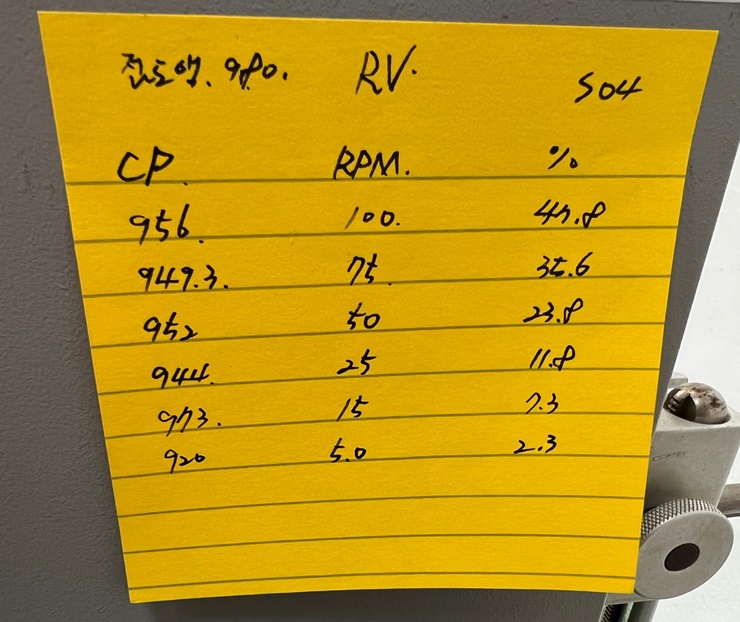 점도액. 980. RV. S04
CP. RPM. %
956. 100. 47.8
949.3. 75 35.6
952 50 23.8
944. 25 11.8
973. 15 7.3
920 5.0 2.3